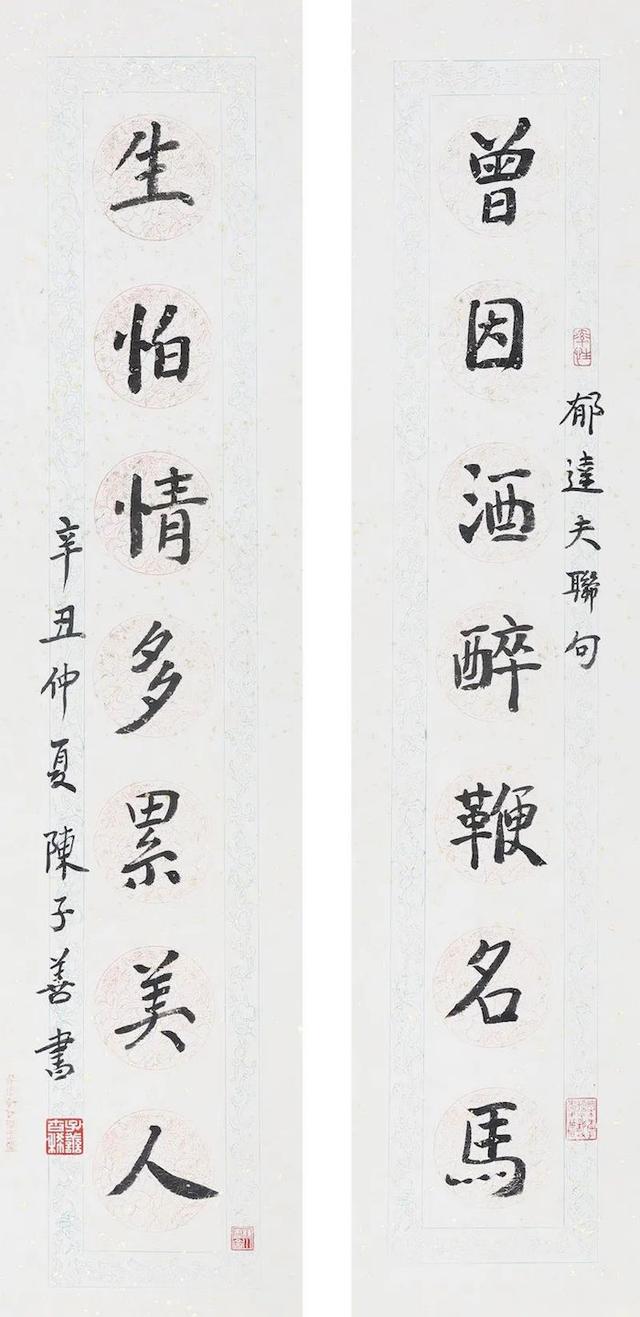 曾因酒醉鞭名馬
郁達夫聯句
生怕情多累美人
辛丑仲夏陳子善書